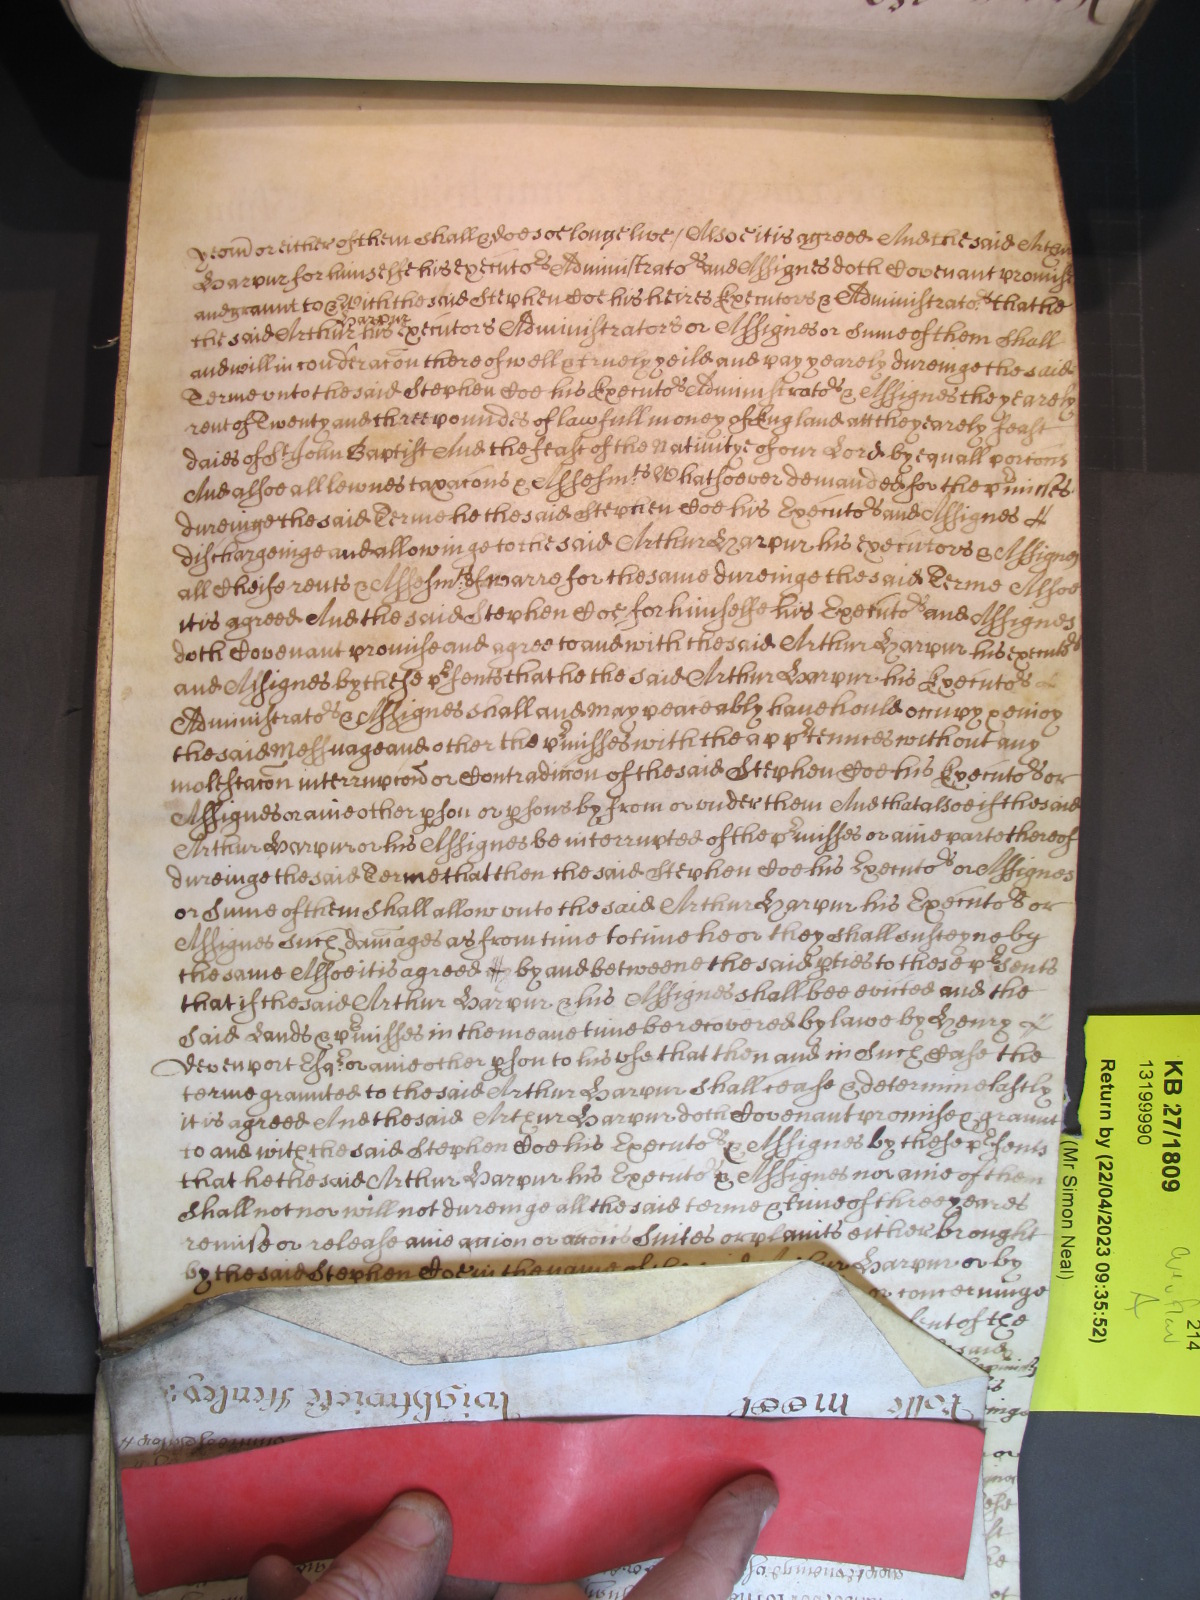 yeom̄ or either of them shall & doe soe longe live / Alsoe it is agreed And the said Arthur
Harpur for himselfe his executors Administrators and Assignes doth Covenant promise
and graunt to & With the said Stephen Coe his heires Executors & Administrators that he
the said Arthur Harpur his executors Administrators or Assignes or sume of them shall
and will in consideracōn thereof well & truely yeild and pay yearely dureinge the said
Terme unto the said Stephen Coe his Executors Administrators & Assignes the yearely
rent of Twenty and three poundes of lawfull money of England att the yearely feast
daies of St John Baptist And the feast of the Nativitye of our Lord by equall porcons
And alsoe all lewnes taxacons & Assessmts Whatsoever demanded for the pʳmisses
dureinge the said Terme he the said Stephen Coe his Executors and Assignes
dischargeinge and allowinge to the said Arthur Harpur his executors & Assignes
all cheife rents & Assessmts of warre for the same dureinge the said Terme Alsoe
it is agreed And the said Stephen Coe for himselfe his Executors and Assignes
doth Covenant promise and agree to and with the said Arthur Harpur his executors
and Assignes by these pʳsents that he the said Arthur Harpur his Executors
Administrators & Assignes shall and may peaceably have hould occupy & enioy
the said Messuage and other the pʳmisses with the appʳtennces without any
molestacōn interrupcōn or Contradiccon of the said Stephen Coe his Executors or
Assignes or anie other pson or psons by from or under them And that alsoe if the said
Arthur Harpur or his Assignes be interrupted of the pʳmisses or anie parte thereof
dureinge the said Terme that then the said Stephen Coe his Executors or Assignes
or sume of them shall allow unto the said Arthur Harpur his Executors or
Assignes such dam̄ages as from time to time he or they shall susteyne by
the same Alsoe it is agreed by and betweene the said pties to these pʳsents
that if the said Arthur Harpur & his Assignes shall bee evicted and the
said Lands & pʳmisses in the meane time be recovered by lawe by Henry
Devenport Esqʳ or anie other pson to his use that then and in such Case the
terme graunted to the said Arthur Harpur shall cease & determine lastly
it is agreed And the said Arthur Harpur doth Covenant promise & graunt
to and with the said Stephen Coe his Executors & Assignes by these pʳsents
that he the said Arthur Harpur his Executors & Assignes nor anie of them
shall not nor will not dureinge all the said terme & time of three yeares
remise or release anie accion or accons suites or plaints either brought
by the said Stephen Coe in the name of the said Arthur Harpur or by
or concerninge
of the
said
Rolle most
KB 27/1809
13199990
Return by (22/04/2023 09:35:52)
(Mr Simon Neal)
214
A